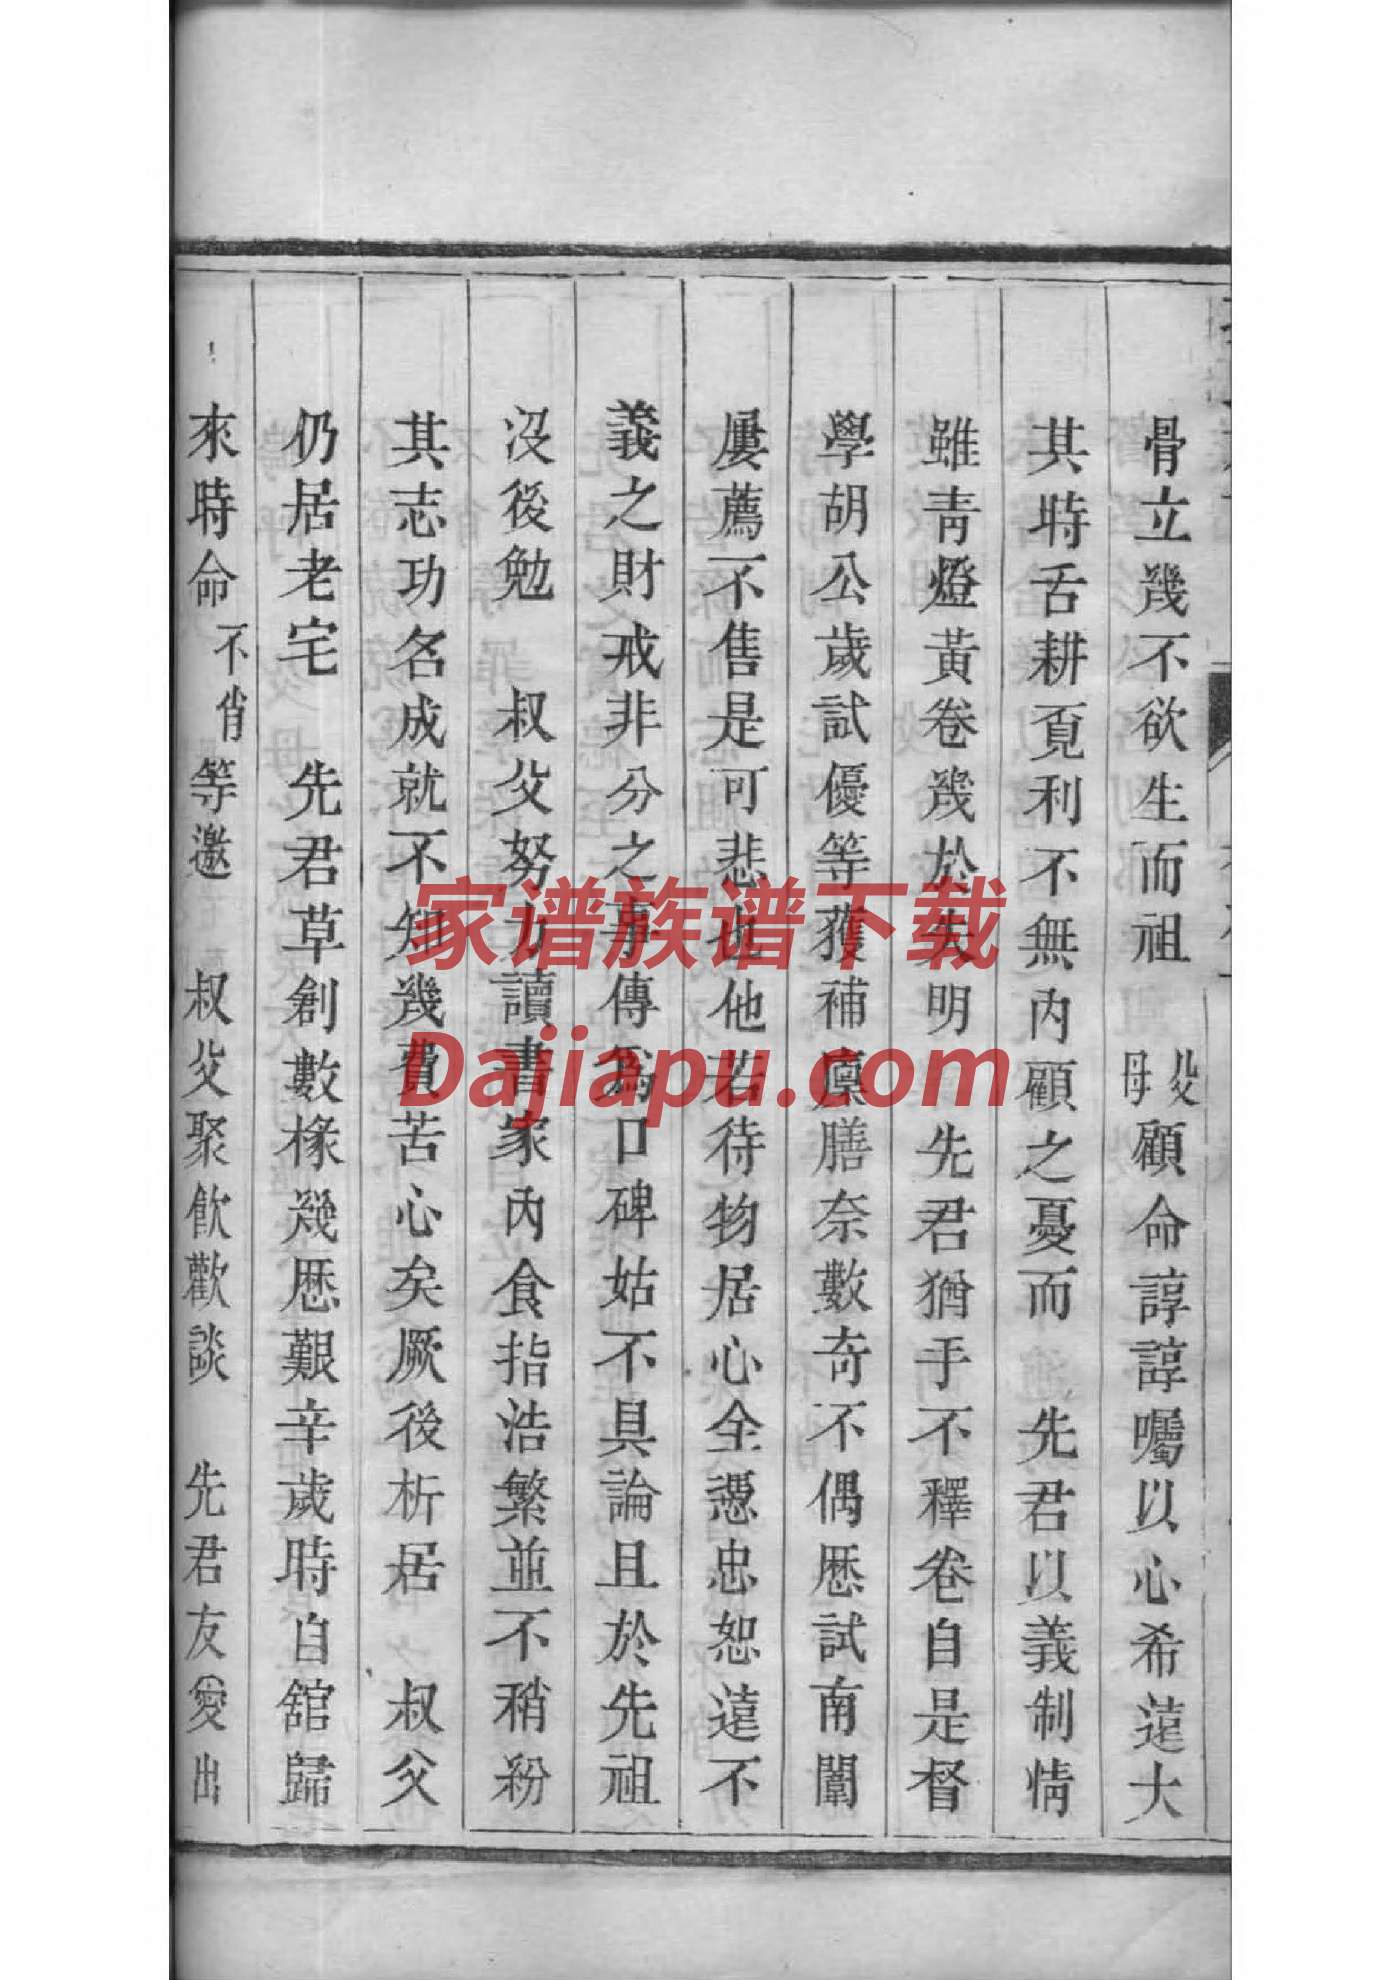 骨立幾不欲生而祖父母顧命諄諄囑以心希遠大
其時舌耕覔利不無內顧之憂而　先君以義制情
雖靑燈黃卷幾於失明　先君猶手不釋卷自是督
學胡公歲試優等獲補廩膳奈數奇不偶歷試南闈
屢薦不售是可悲也他若待物居心全憑忠恕遠不
義之財戒非分之事傳爲口碑姑不具論且於先祖
沒後勉　叔父努力讀書家內食指浩繁並不稍紛
其志功名成就不知幾費苦心矣厥後析居　叔父
仍居老宅　先君草創數椽幾歷艱辛歲時自舘歸
來時命不肖等邀　叔父聚飮歡談　先君友愛出
家谱族谱下载
Dajiapu.com